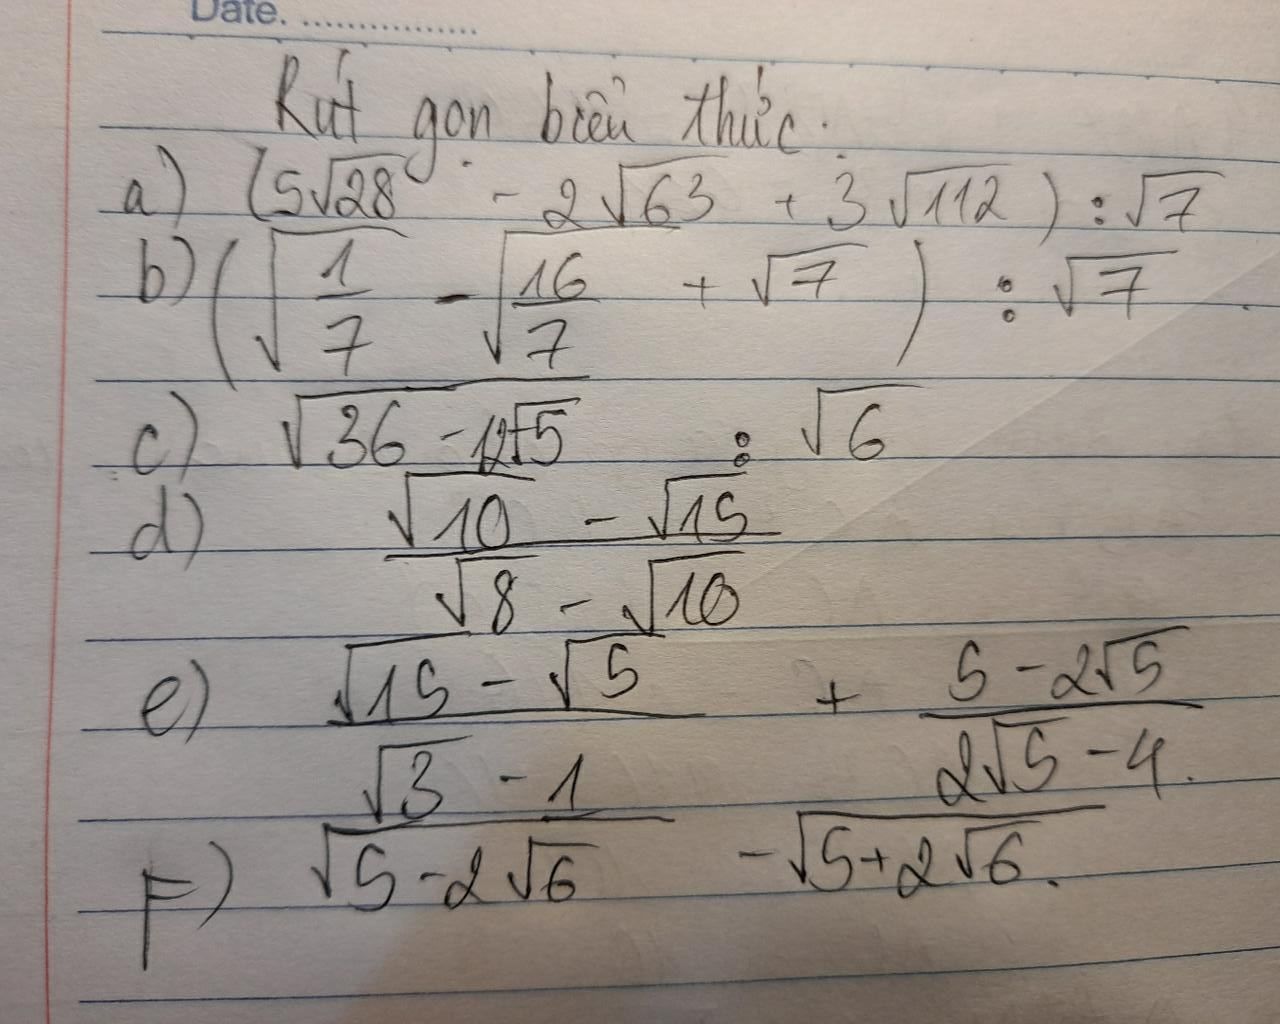 Date. ................
Rút gọn biểu thức:
a) (5√28 - 2√63 + 3√112) : √7
b) (√(1/7) - √(16/7) + √7) : √7
c) √(36 - 12√5) : √6
d) (√10 - √15)/(√8 - √10)
e) (√15 - √5)/(√3 - 1) + (5 - 2√5)/(2√5 - 4).
F) √(5 - 2√6) - √(5 + 2√6).